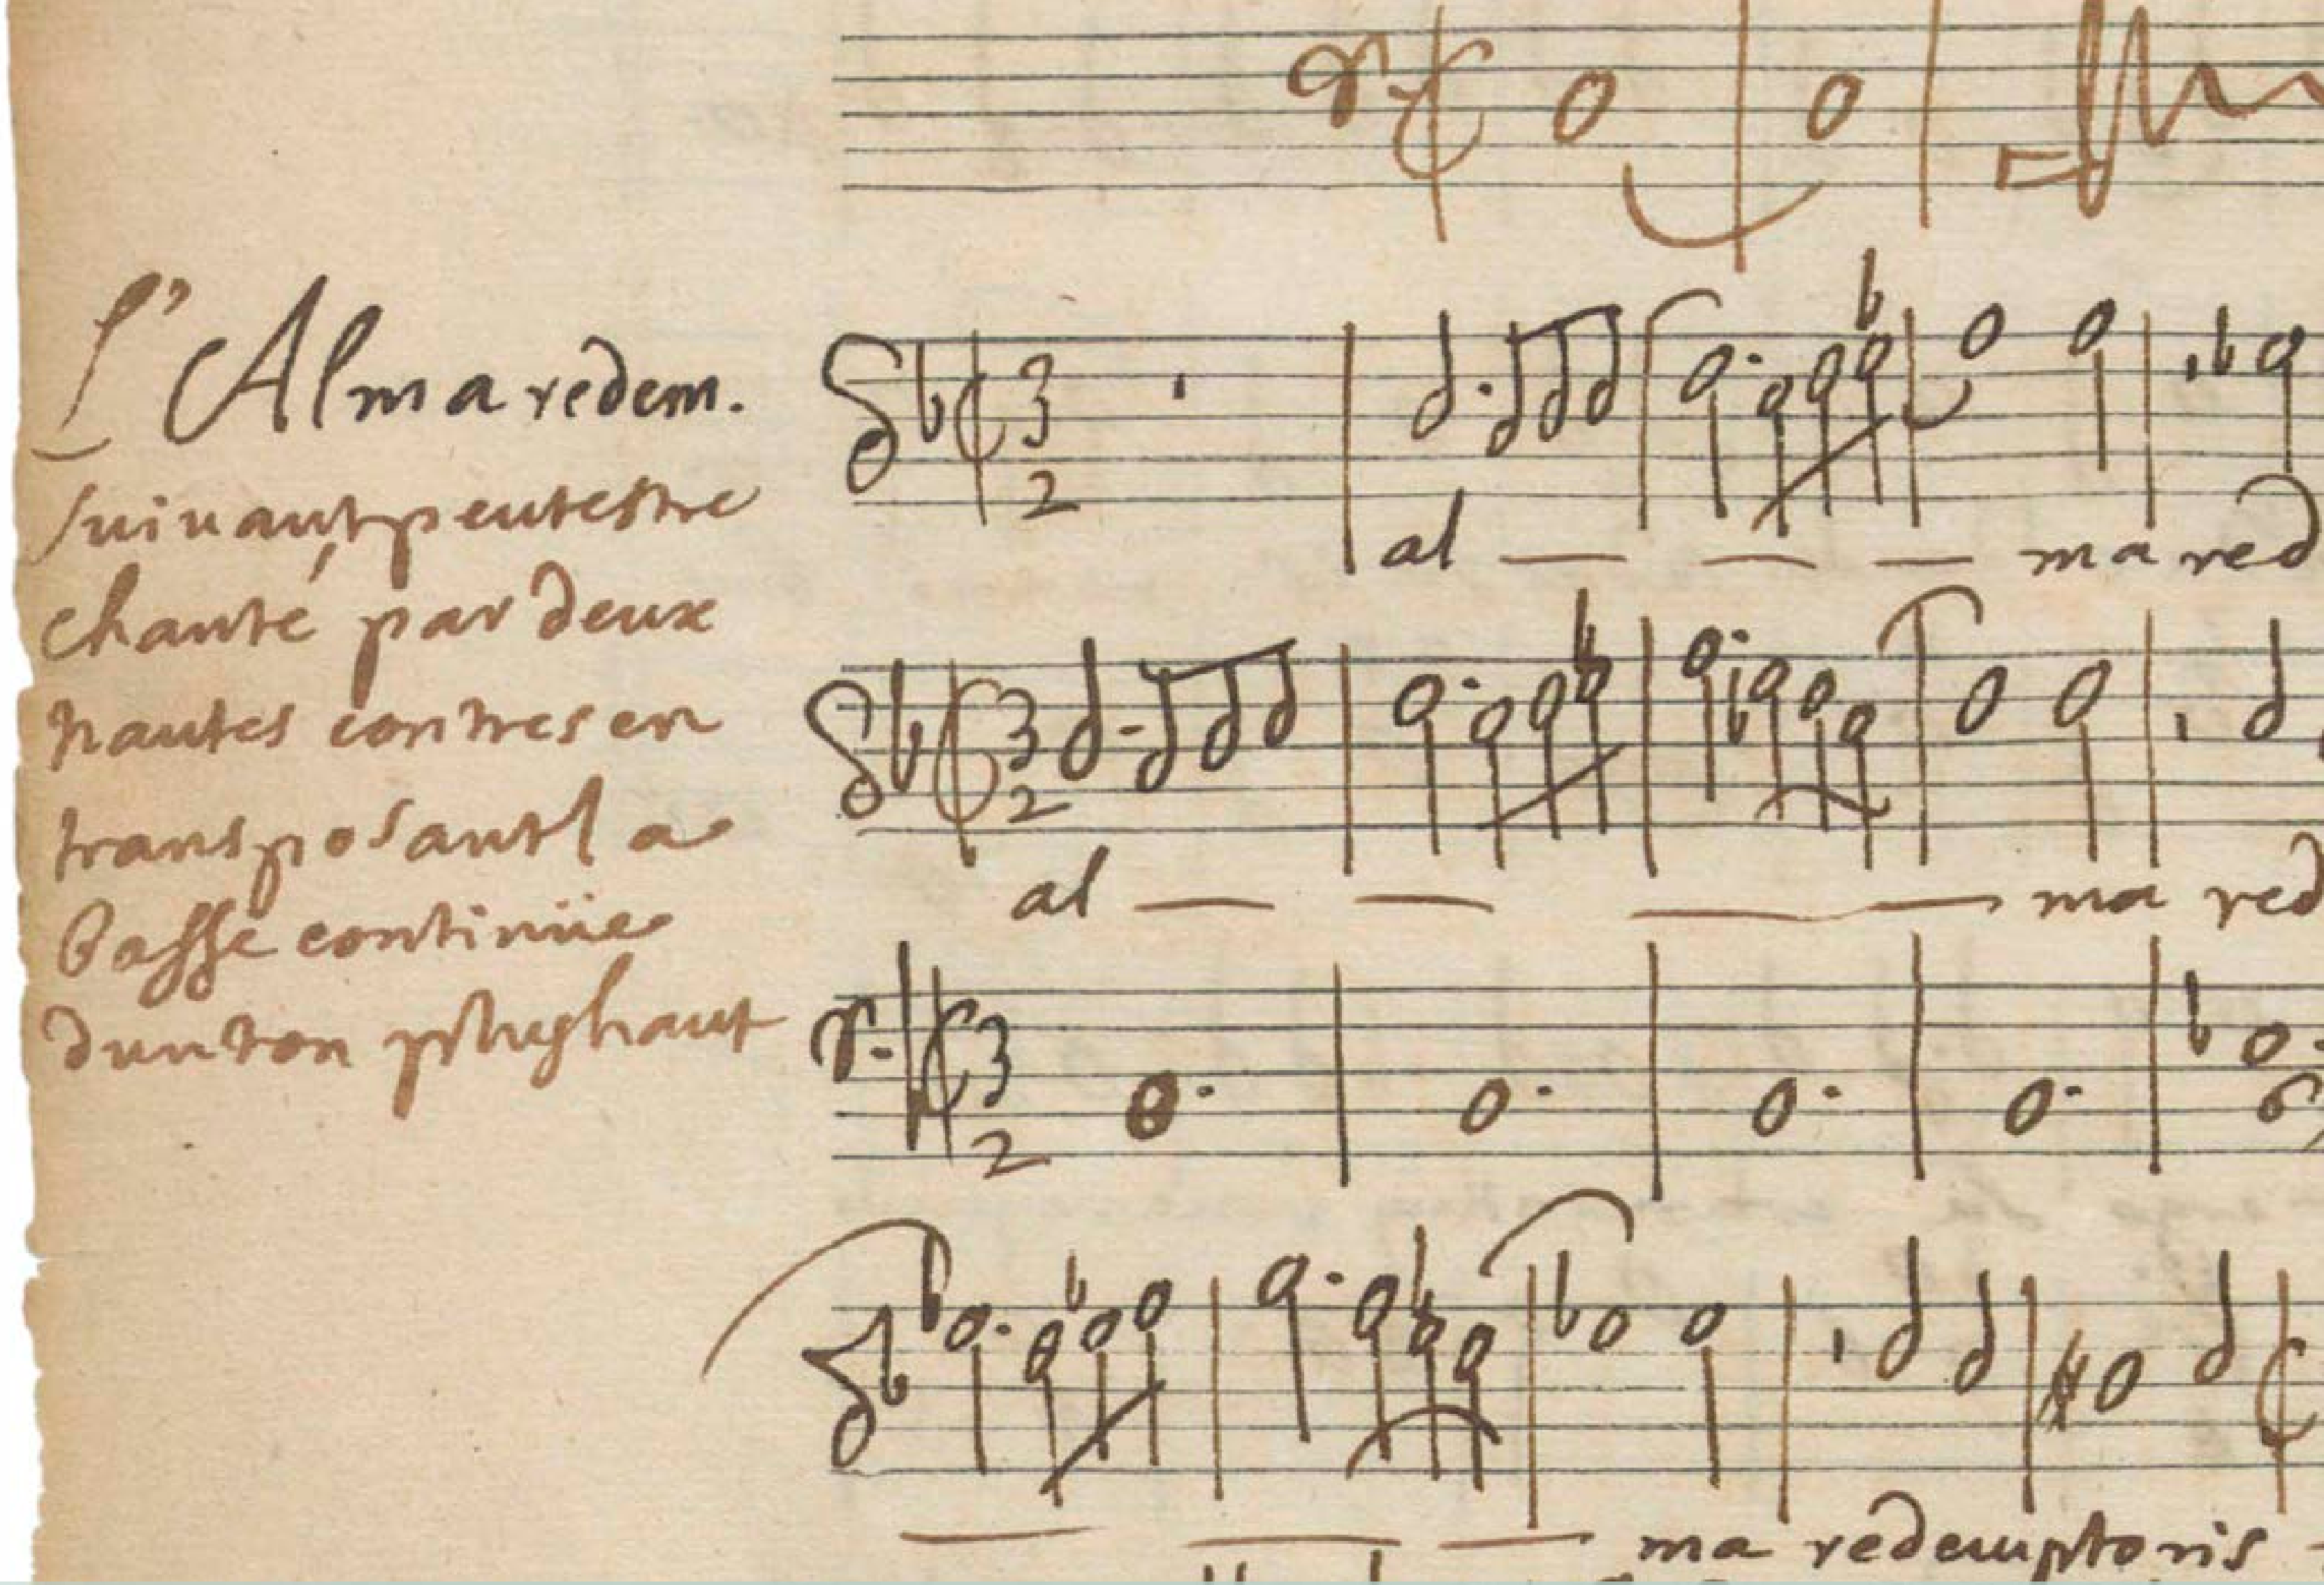 L'Alma redem.
suivant peut estre
chanté par deux
hautes contres en
transposant la
basse continüe
d'un ton plus haut
3
2
al — — — ma red
3
2
al — — — ma red
3
2
— — — ma redemptoris